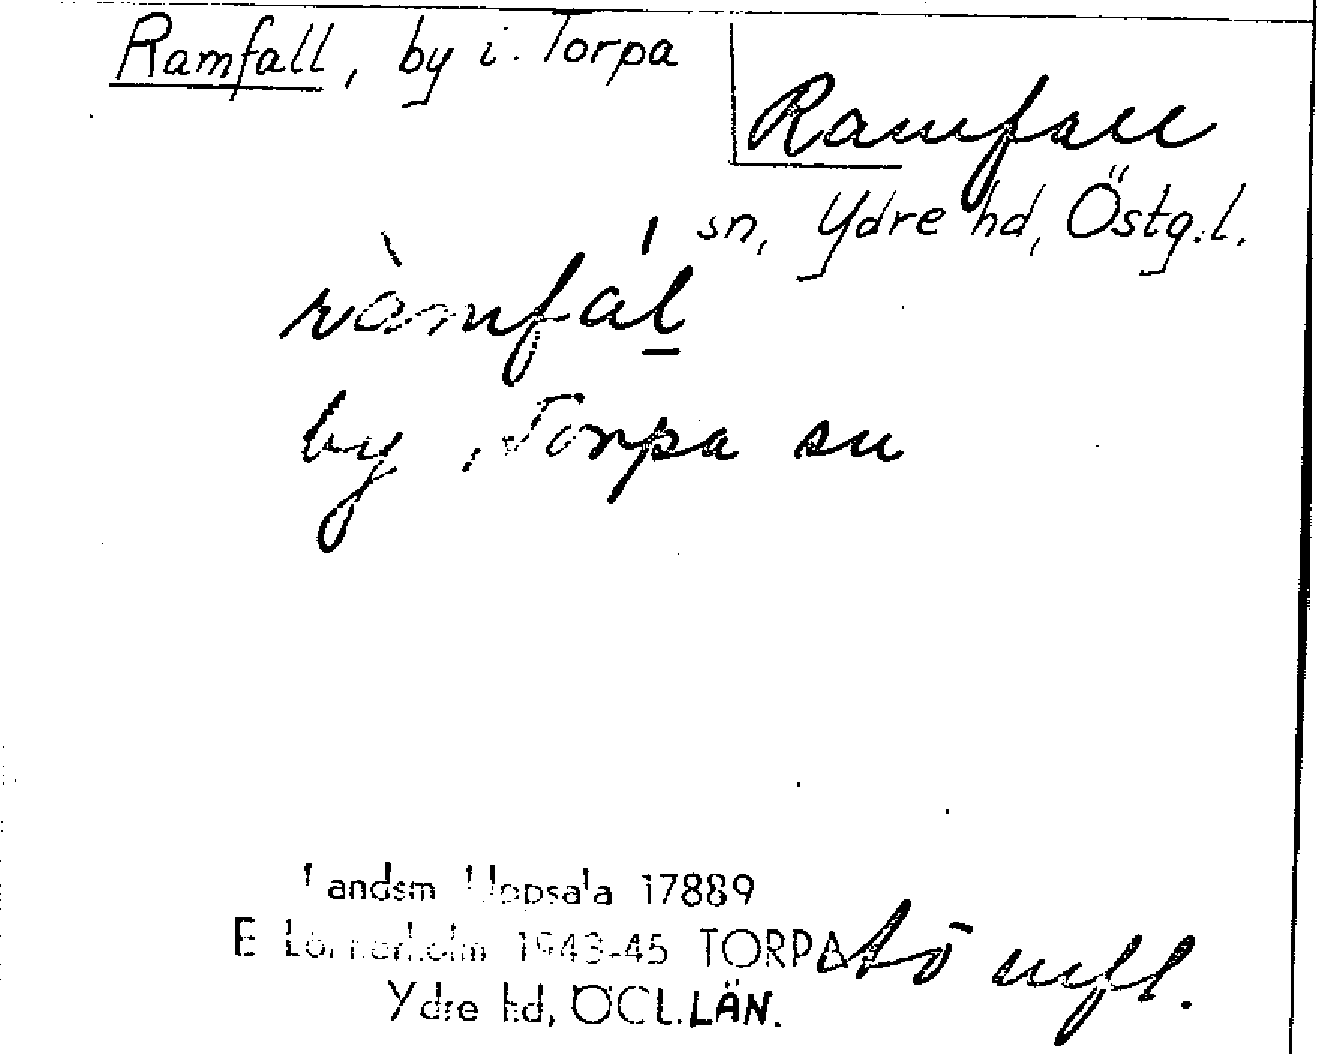 Ramfall, by i Torpa
Ramfall
sn, Ydre hd, Östg.l.
ràmfál
by, Torpa sn
Landsm Uppsala 17889
E Lönnerholm 1943-45 TORPA
Ydre hd, ÖGL.LÄN.
mfl.